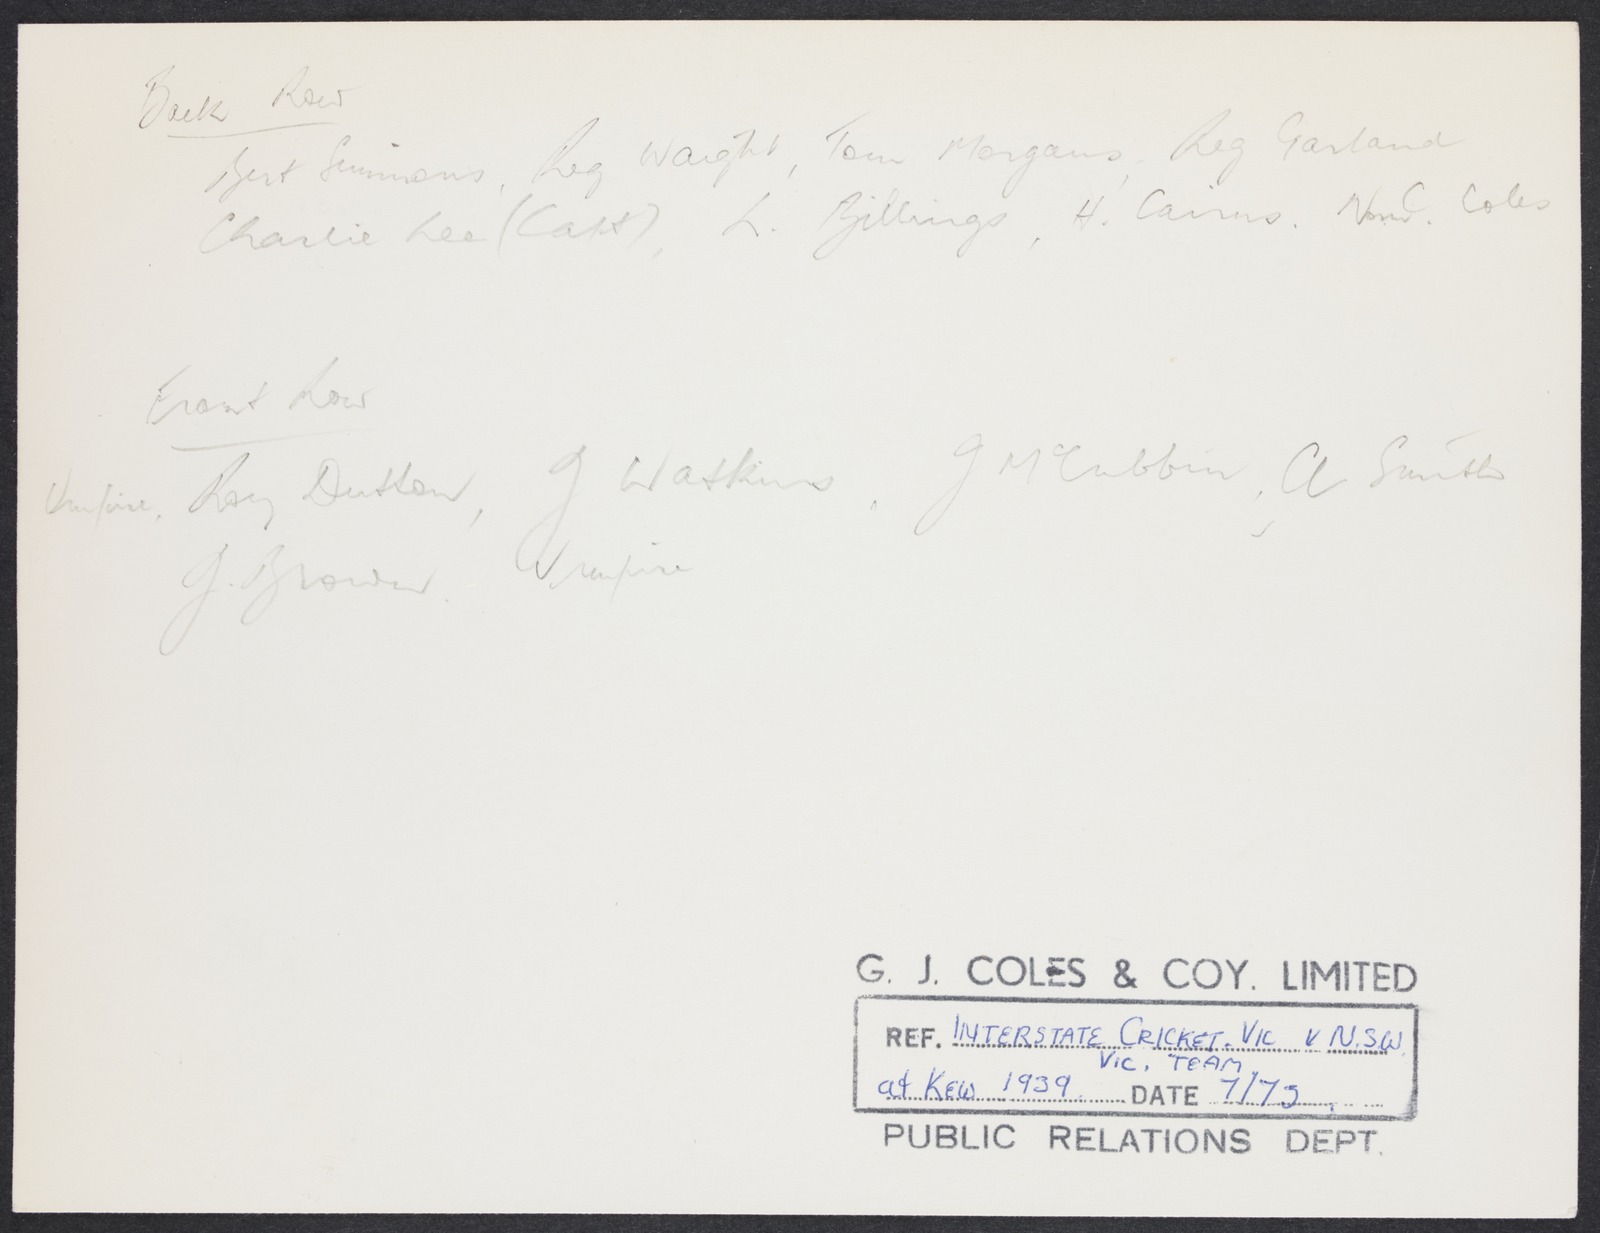 Back Row
Bert Simmons, Reg Waight, Tom Morgans, Reg Garland
Charlie Lee (Capt), L. Billings, H. Cairns. Norm C. Coles
Front Row
Umpire, Roy Dutton, J Watkins, J McCubbin, A Smith
J. Brown. Umpire
G. J. COLES & COY. LIMITED
REF. INTERSTATE CRICKET. VIC V N.S.W.
VIC. TEAM,
at KEW 1939. DATE 7/73
PUBLIC RELATIONS DEPT.